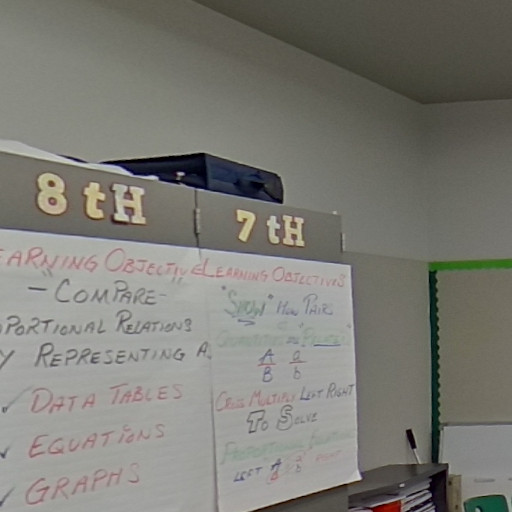 8 tH
7 tH
EARNING OBJECTIV
- COMPARE -
PORTIONAL RELATIONS
Y REPRESENTING A
✓ DATA TABLES
✓ EQUATIONS
✓ GRAPHS
LEARNING OBJECTIVES
"SHOW" HOW PAIRS
A a
B b
CROSS MULTIPLY LEFT RIGHT
TO SOLVE
LEFT A b RIGHT